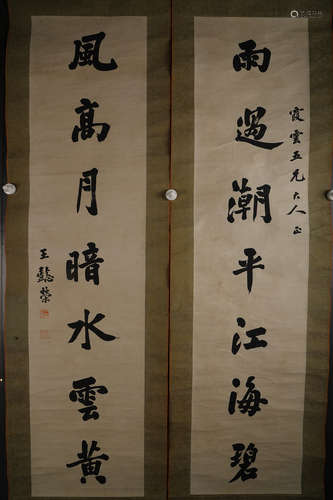 霞雲五兄大人正
雨過潮平江海碧
風高月暗水雲黃
王懿榮